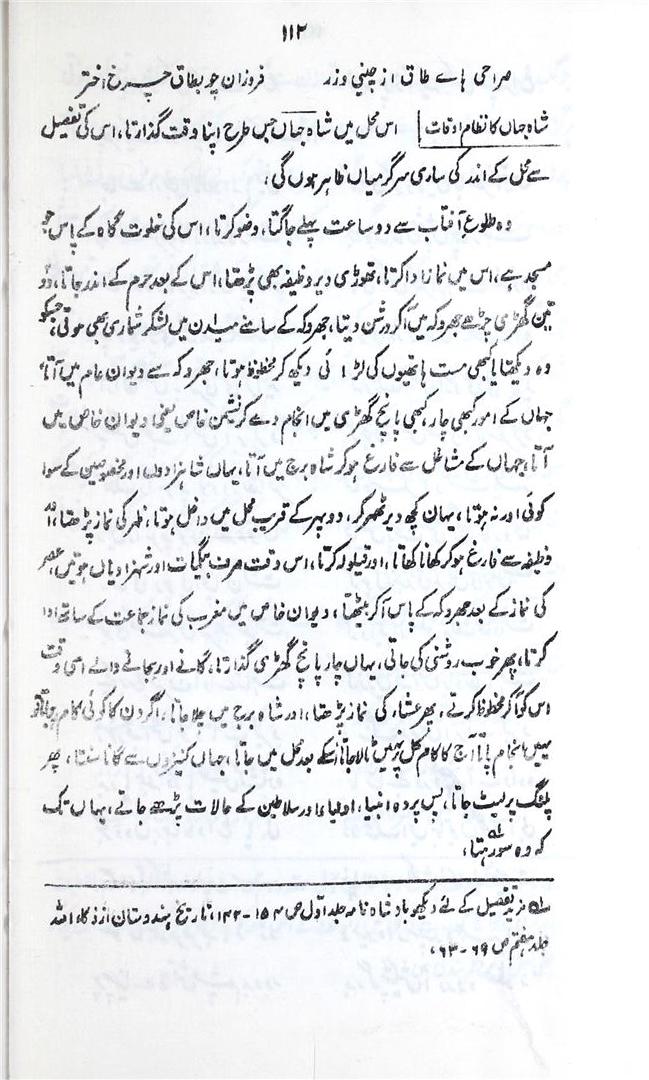 ۱۱۲
صراحی ہاے طاق از چینی و زر فروزان چو بطاق چرخ اختر
شاہ جہاں کا نظام اوقات اس محل میں شاہ جہاں جس طرح اپنا وقت گذارتا، اس کی تفصیل
سے محل کے اندر کی ساری سرگرمیاں ظاہر ہوں گی،
وہ طلوع آفتاب سے دو ساعت پہلے جاگتا، وضو کرتا، اس کی خلوت گاہ کے پاس جو
مسجد ہے، اس میں نماز ادا کرتا، تھوڑی دیر وظیفہ بھی پڑھتا، اس کے بعد حرم کے اندر جاتا، دو
تین گھڑی چڑھے جھروکہ میں آکر درشن دیتا، جھروکہ کے سامنے میدان میں لشکر شماری بھی ہوتی، جسکو
وہ دیکھتا یا کبھی مست ہاتھیوں کی لڑائی دیکھ کر محظوظ ہوتا، جھروکہ سے دیوان عام میں آتا،
جہاں کے امور کبھی چار، کبھی پانچ گھڑی میں انجام دے کر نشیمن خاص یعنی دیوان خاص میں
آتا، جہاں کے مشاغل سے فارغ ہو کر شاہ برج میں آتا، یہاں شاہزادوں اور مخصوصین کے سوا
کوئی اور نہ ہوتا، یہاں کچھ دیر ٹھہر کر، دوپہر کے قریب محل میں داخل ہوتا، ظہر کی نماز پڑھتا، اور
وظیفہ سے فارغ ہو کر کھانا کھاتا، اور قیلولہ کرتا، اس وقت صرف بیگمات اور شہزادیاں ہوتیں، عصر
کی نماز کے بعد جھروکہ کے پاس آکر بیٹھتا، دیوان خاص میں مغرب کی نماز جماعت کے ساتھ ادا
کرتا، پھر خوب روشنی کی جاتی، یہاں چار پانچ گھڑی گذارتا، گانے اور بجانے والے اسی وقت
اس کو آکر محظوظ کرتے، پھر عشاء کی نماز پڑھتا، اور شاہ برج میں چلا جاتا، اگر دن کا کوئی کام رہ جاتا تو
یہیں انجام پاتا آج کا کام کل پر نہیں ٹالا جاتا اسکے بعد محل میں جاتا، جہاں کنیزوں سے گانا سنتا، پھر
پلنگ پر لیٹ جاتا، پس پردہ انبیا، اولیاء اور سلاطین کے حالات پڑھے جاتے، یہاں تک
کہ وہ سو رہتا،
لہ مزید تفصیل کے لئے دیکھو بادشاہ نامہ جلد اول ص ۱۵۴-۱۴۲، تاریخ ہندوستان از ذکاء اللہ
جلد ہفتم ص ۶۹-۶۳،